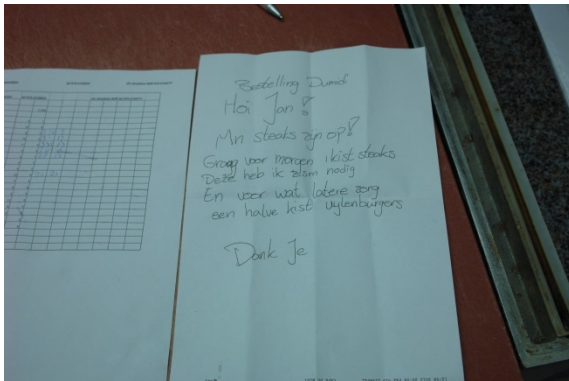 Bestelling Dumof
Hoi Jan!
Mn steaks zijn op!
Graag voor morgen 1 kist steaks
Deze heb ik nodig
En voor wat latere zorg
een halve kist uylenburgers
Dank Je